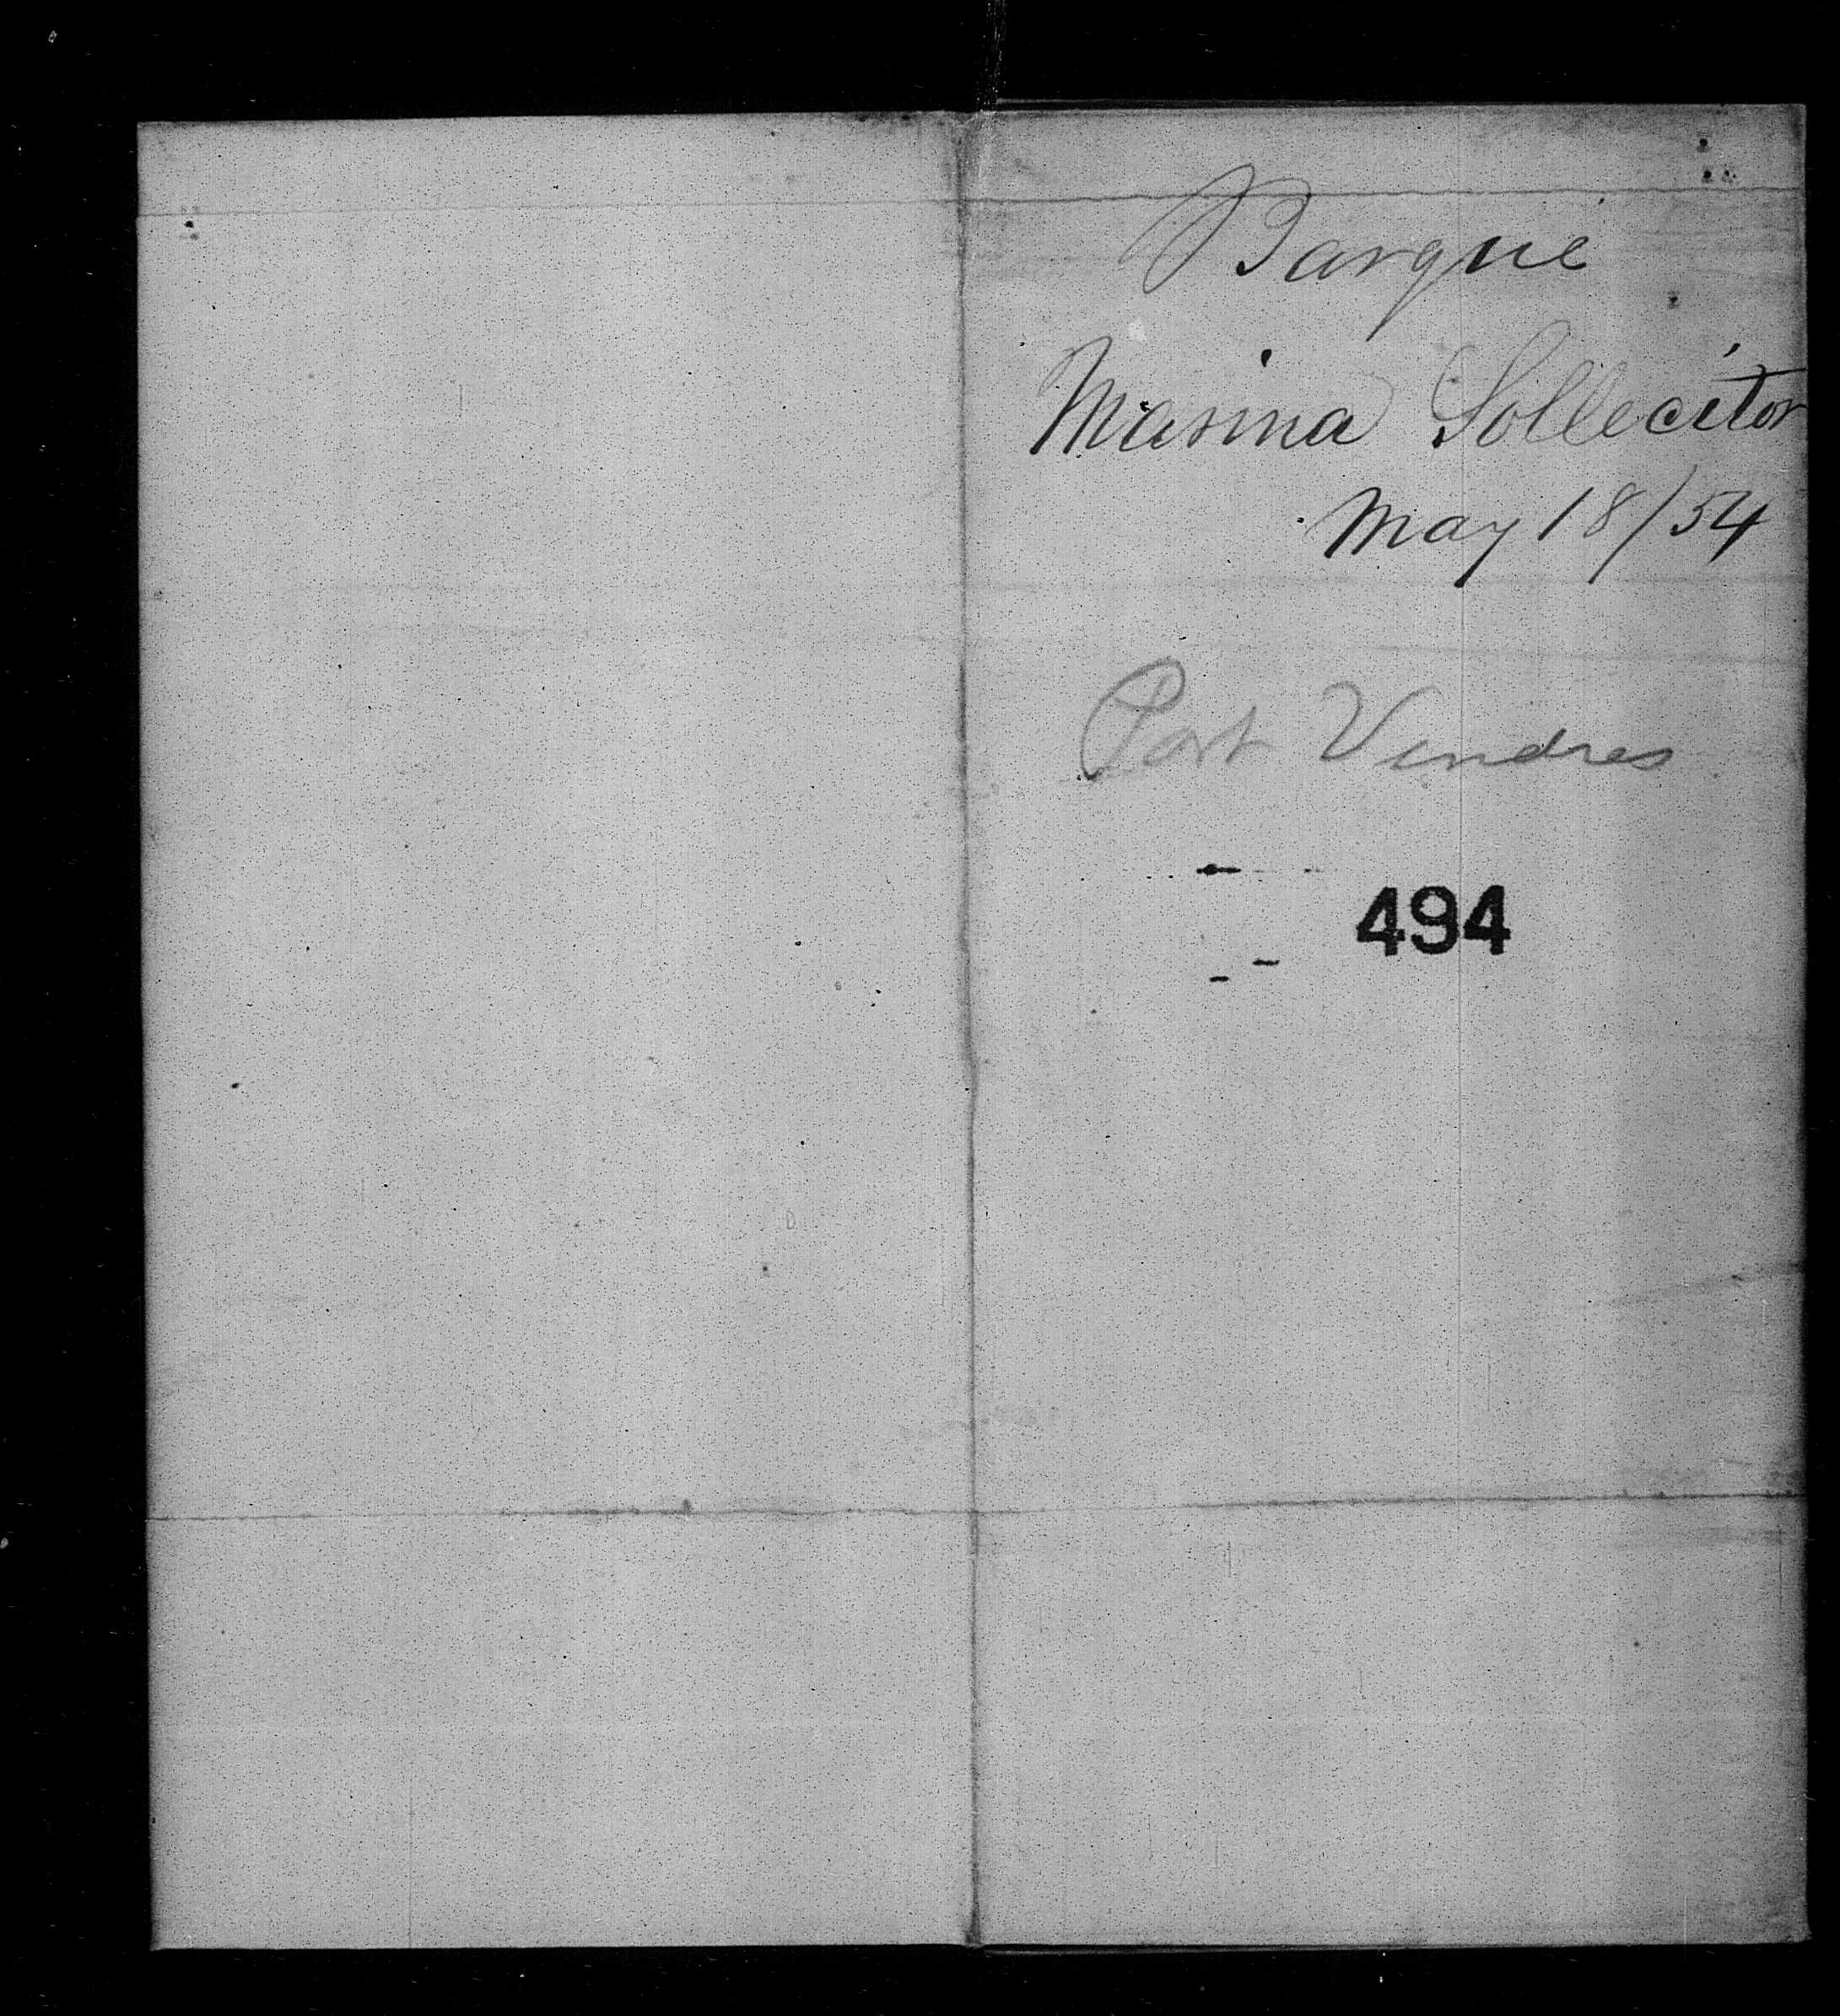 Barque
Marina Sollecitor
May 18/54
Port Vendres
494